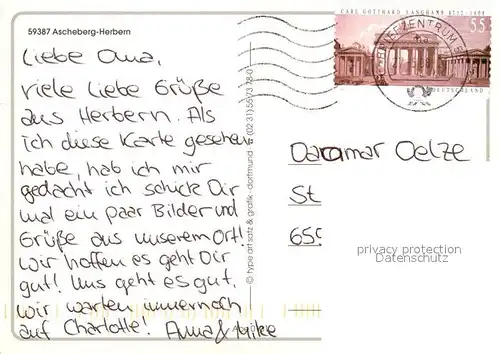 59387 Ascheberg-Herbern
Liebe Oma,
viele liebe Grüße
aus Herbern. Als
ich diese Karte gesehen
habe, hab ich mir
gedacht ich schick Dir
mal ein paar Bilder und
Grüße aus unserem Ort!
Wir hoffen es geht Dir
gut! Uns geht es gut,
wir warten immernoch
auf Charlotte! Anna & Mike
© type art satz & grafik · dortmund · ☎ (02 31) 55 73 78-0
CARL GOTTHARD LANGHANS 1732-1808
55
DEUTSCHLAND
BRIEFZENTRUM
Dagmar Oelze
St
655
privacy protection
Datenschutz